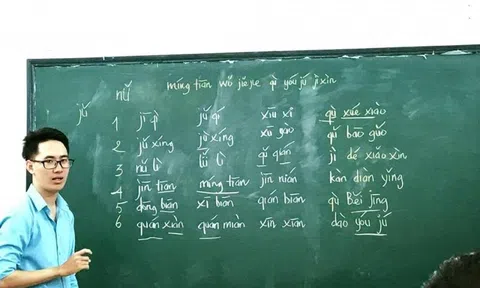 míng tiān wǒ jiějie qù yóu jú jì xìn
nǚ
jú
1 jī qì jú qí xiū xi qù xué xiào
2 jǔ xíng jù xíng xū yào qǔ bāo guǒ
3 nǔ lì lǜ lì qí quán jì dé xiǎo xīn
4 jīn tiān míng tiān jīn nián kàn diàn yǐng
5 dōng bian xī bian qián bian qù Běi jīng
6 quán xiàn quán miàn xīn xiān dào yóu jú